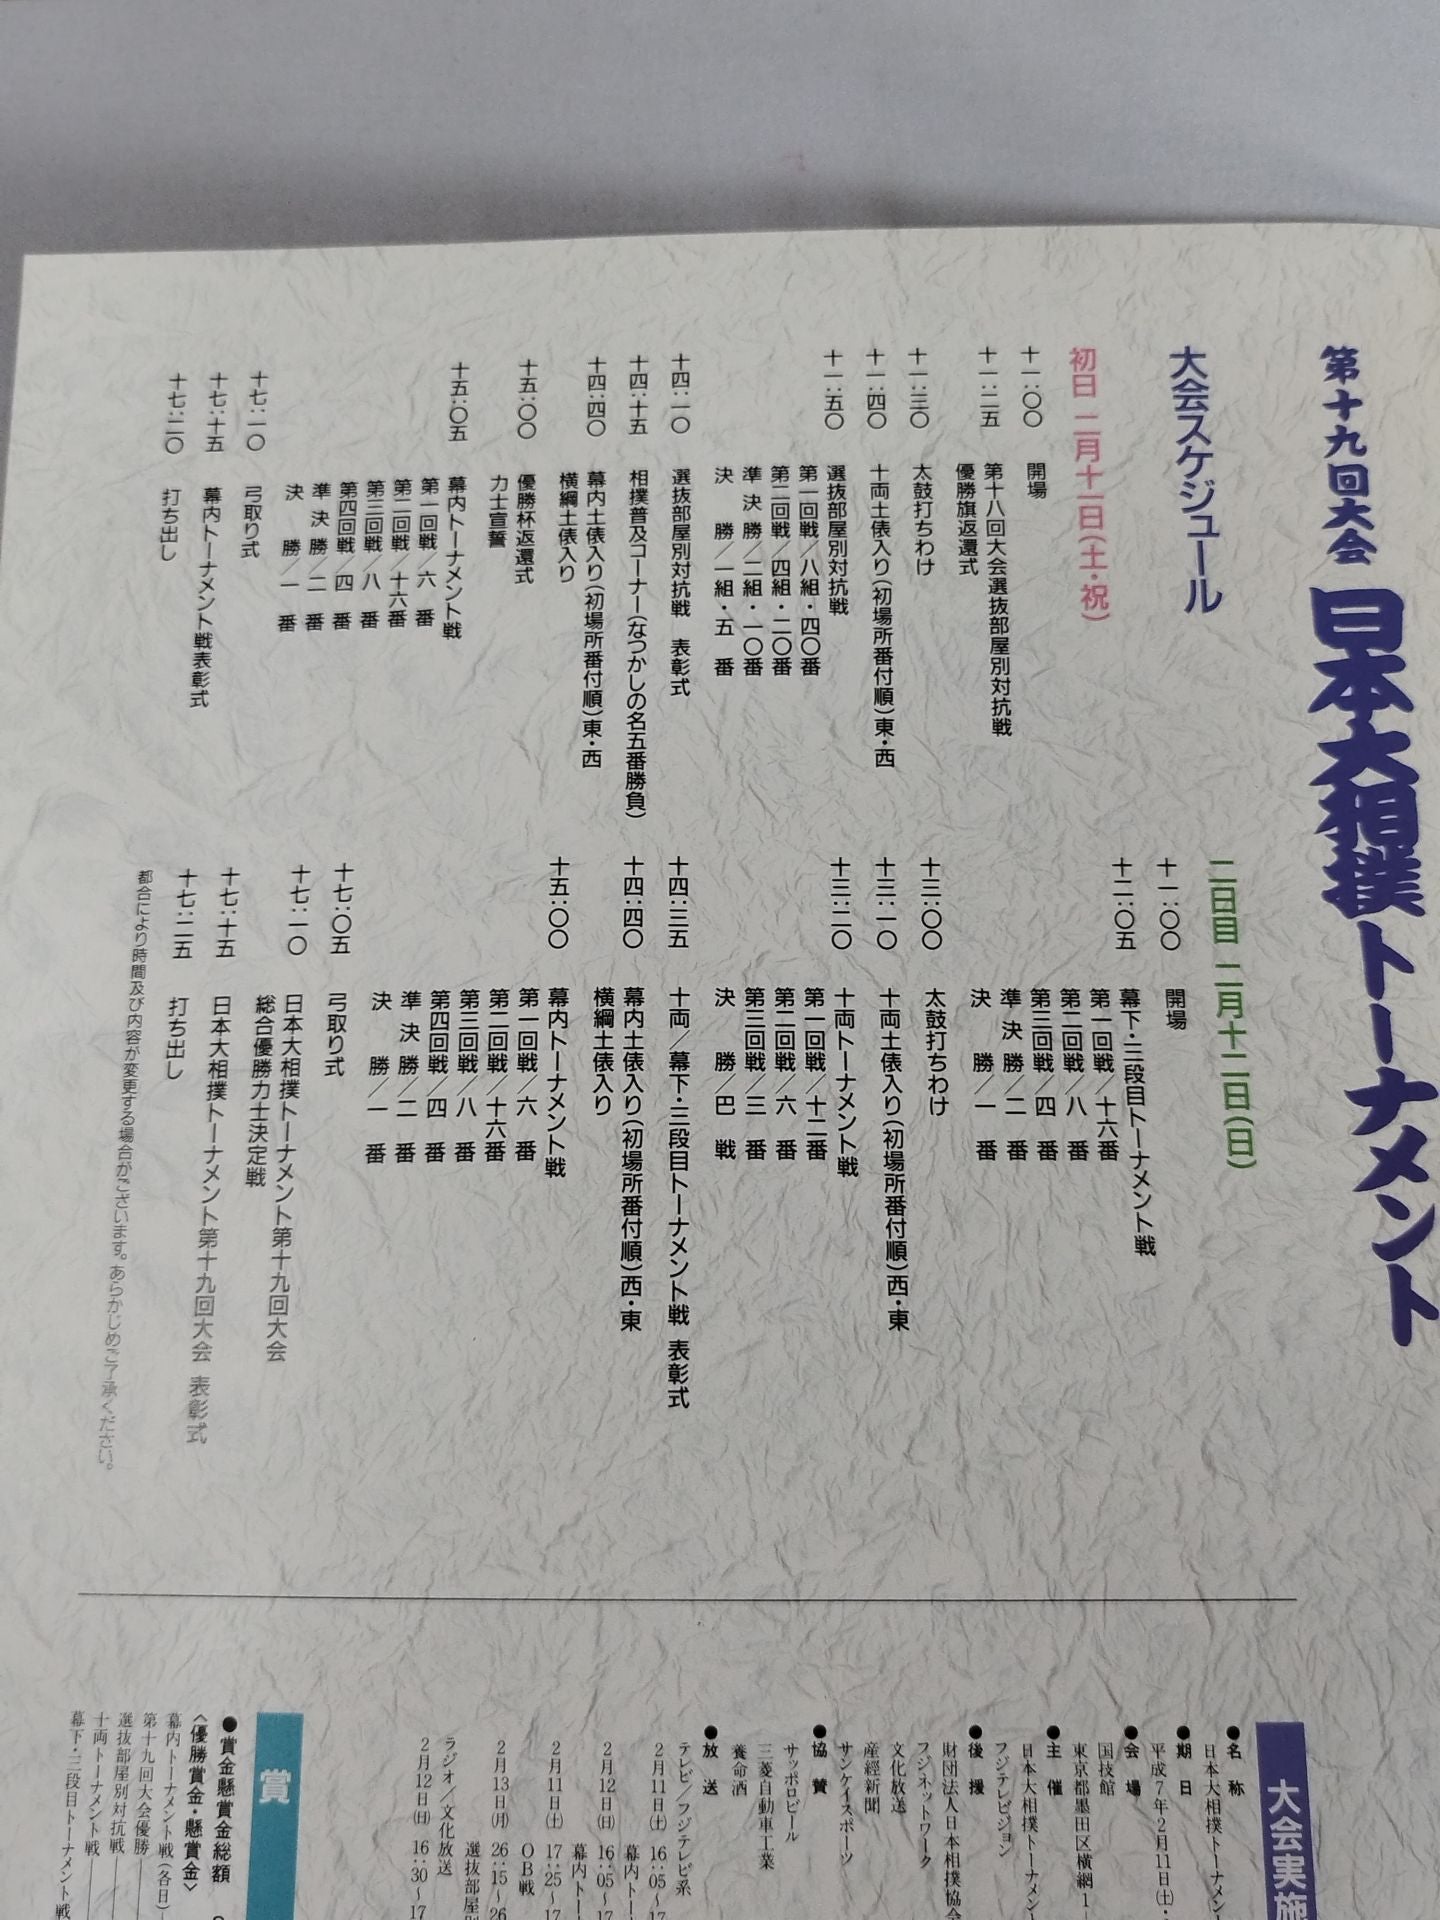 第十九回大会 日本大相撲トーナメント
大会スケジュール
初日 二月十一日(土・祝)
十一:〇〇 開場
十一:二五 第十八回大会選抜部屋別対抗戦
優勝旗返還式
十一:三〇 太鼓打ちわけ
十一:四〇 十両土俵入り(初場所番付順)東・西
十一:五〇 選抜部屋別対抗戦
第一回戦/八組・四〇番
第二回戦/四組・二〇番
準決勝/二組・一〇番
決勝/一組・五番
十四:一〇 選抜部屋別対抗戦 表彰式
十四:十五 相撲普及コーナー(なつかしの名五番勝負)
十四:四〇 幕内土俵入り(初場所番付順)東・西
横綱土俵入り
十五:〇〇 優勝杯返還式
力士宣誓
十五:〇五 幕内トーナメント戦
第一回戦/六番
第二回戦/十六番
第三回戦/八番
第四回戦/四番
準決勝/二番
決勝/一番
十七:一〇 弓取り式
十七:十五 幕内トーナメント戦表彰式
十七:二〇 打ち出し
二日目 二月十二日(日)
十一:〇〇 開場
十二:〇五 幕下・三段目トーナメント戦
第一回戦/十六番
第二回戦/八番
第三回戦/四番
準決勝/二番
決勝/一番
十三:〇〇 太鼓打ちわけ
十三:一〇 十両土俵入り(初場所番付順)西・東
十三:二〇 十両トーナメント戦
第一回戦/十二番
第二回戦/六番
第三回戦/三番
決勝/巴戦
十四:三五 十両/幕下・三段目トーナメント戦 表彰式
十四:四〇 幕内土俵入り(初場所番付順)西・東
横綱土俵入り
十五:〇〇 幕内トーナメント戦
第一回戦/六番
第二回戦/十六番
第三回戦/八番
第四回戦/四番
準決勝/二番
決勝/一番
十七:〇五 弓取り式
十七:一〇 日本大相撲トーナメント第十九回大会
総合優勝力士決定戦
十七:十五 日本大相撲トーナメント第十九回大会 表彰式
十七:二五 打ち出し
都合により時間及び内容が変更する場合がございます。あらかじめご了承ください。
大会実施
●名称
日本大相撲トーナメン
●期日
平成7年2月11日(土)・
●会場
国技館
東京都墨田区横網1-
●主催
日本大相撲トーナメン
フジテレビジョン
●後援
財団法人日本相撲協会
フジネットワーク
文化放送
産経新聞
サンケイスポーツ
●協賛
サッポロビール
三菱自動車工業
養命酒
●放送
テレビ/フジテレビ系
2月11日(土) 16:05~17
幕内トー
2月12日(日) 16:05~17
幕内トー
2月11日(土) 17:25~17
OB戦
2月13日(月) 26:15~26
選抜部屋別
ラジオ/文化放送
2月12日(日) 16:30~17
賞
●賞金懸賞金総額
〈優勝賞金・懸賞金〉
幕内トーナメント戦(各日)
第十九回大会優勝
選抜部屋別対抗戦
十両トーナメント戦
幕下・三段目トーナメント戦